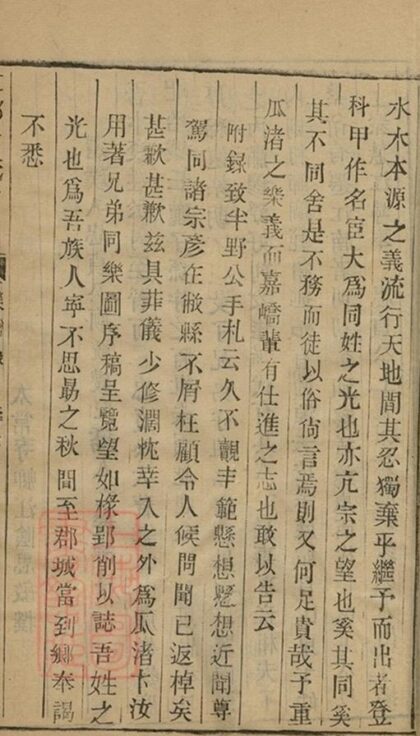 水木本源之義流行天地間其忍獨棄乎繼予而出者登
科甲作名臣大爲同姓之光也亦亢宗之望也奚其同奚
其不同舍是不務而徒以俗尙言焉則又何足貴哉予重
瓜渚之樂義而嘉嶠輩有仕進之志也敢以告云
附錄致半野公手札云久不覿丰範懸想懸想近聞尊
駕同諸宗彥在敝縣不屑枉顧令人候問聞已返棹矣
甚歉甚歉兹具菲儀少修潤枕幸入之外爲瓜渚卜汝
用著兄弟同樂圖序稿呈覽望如椽郢削以誌吾姓之
光也爲吾族人寧不思勗之秋間至郡城當到鄉奉謁
不悉